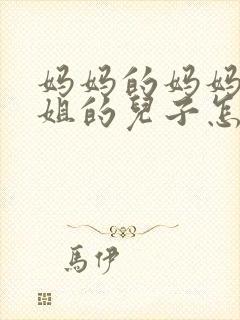 妈妈的妈妈
姐的兒子怎
馬伊